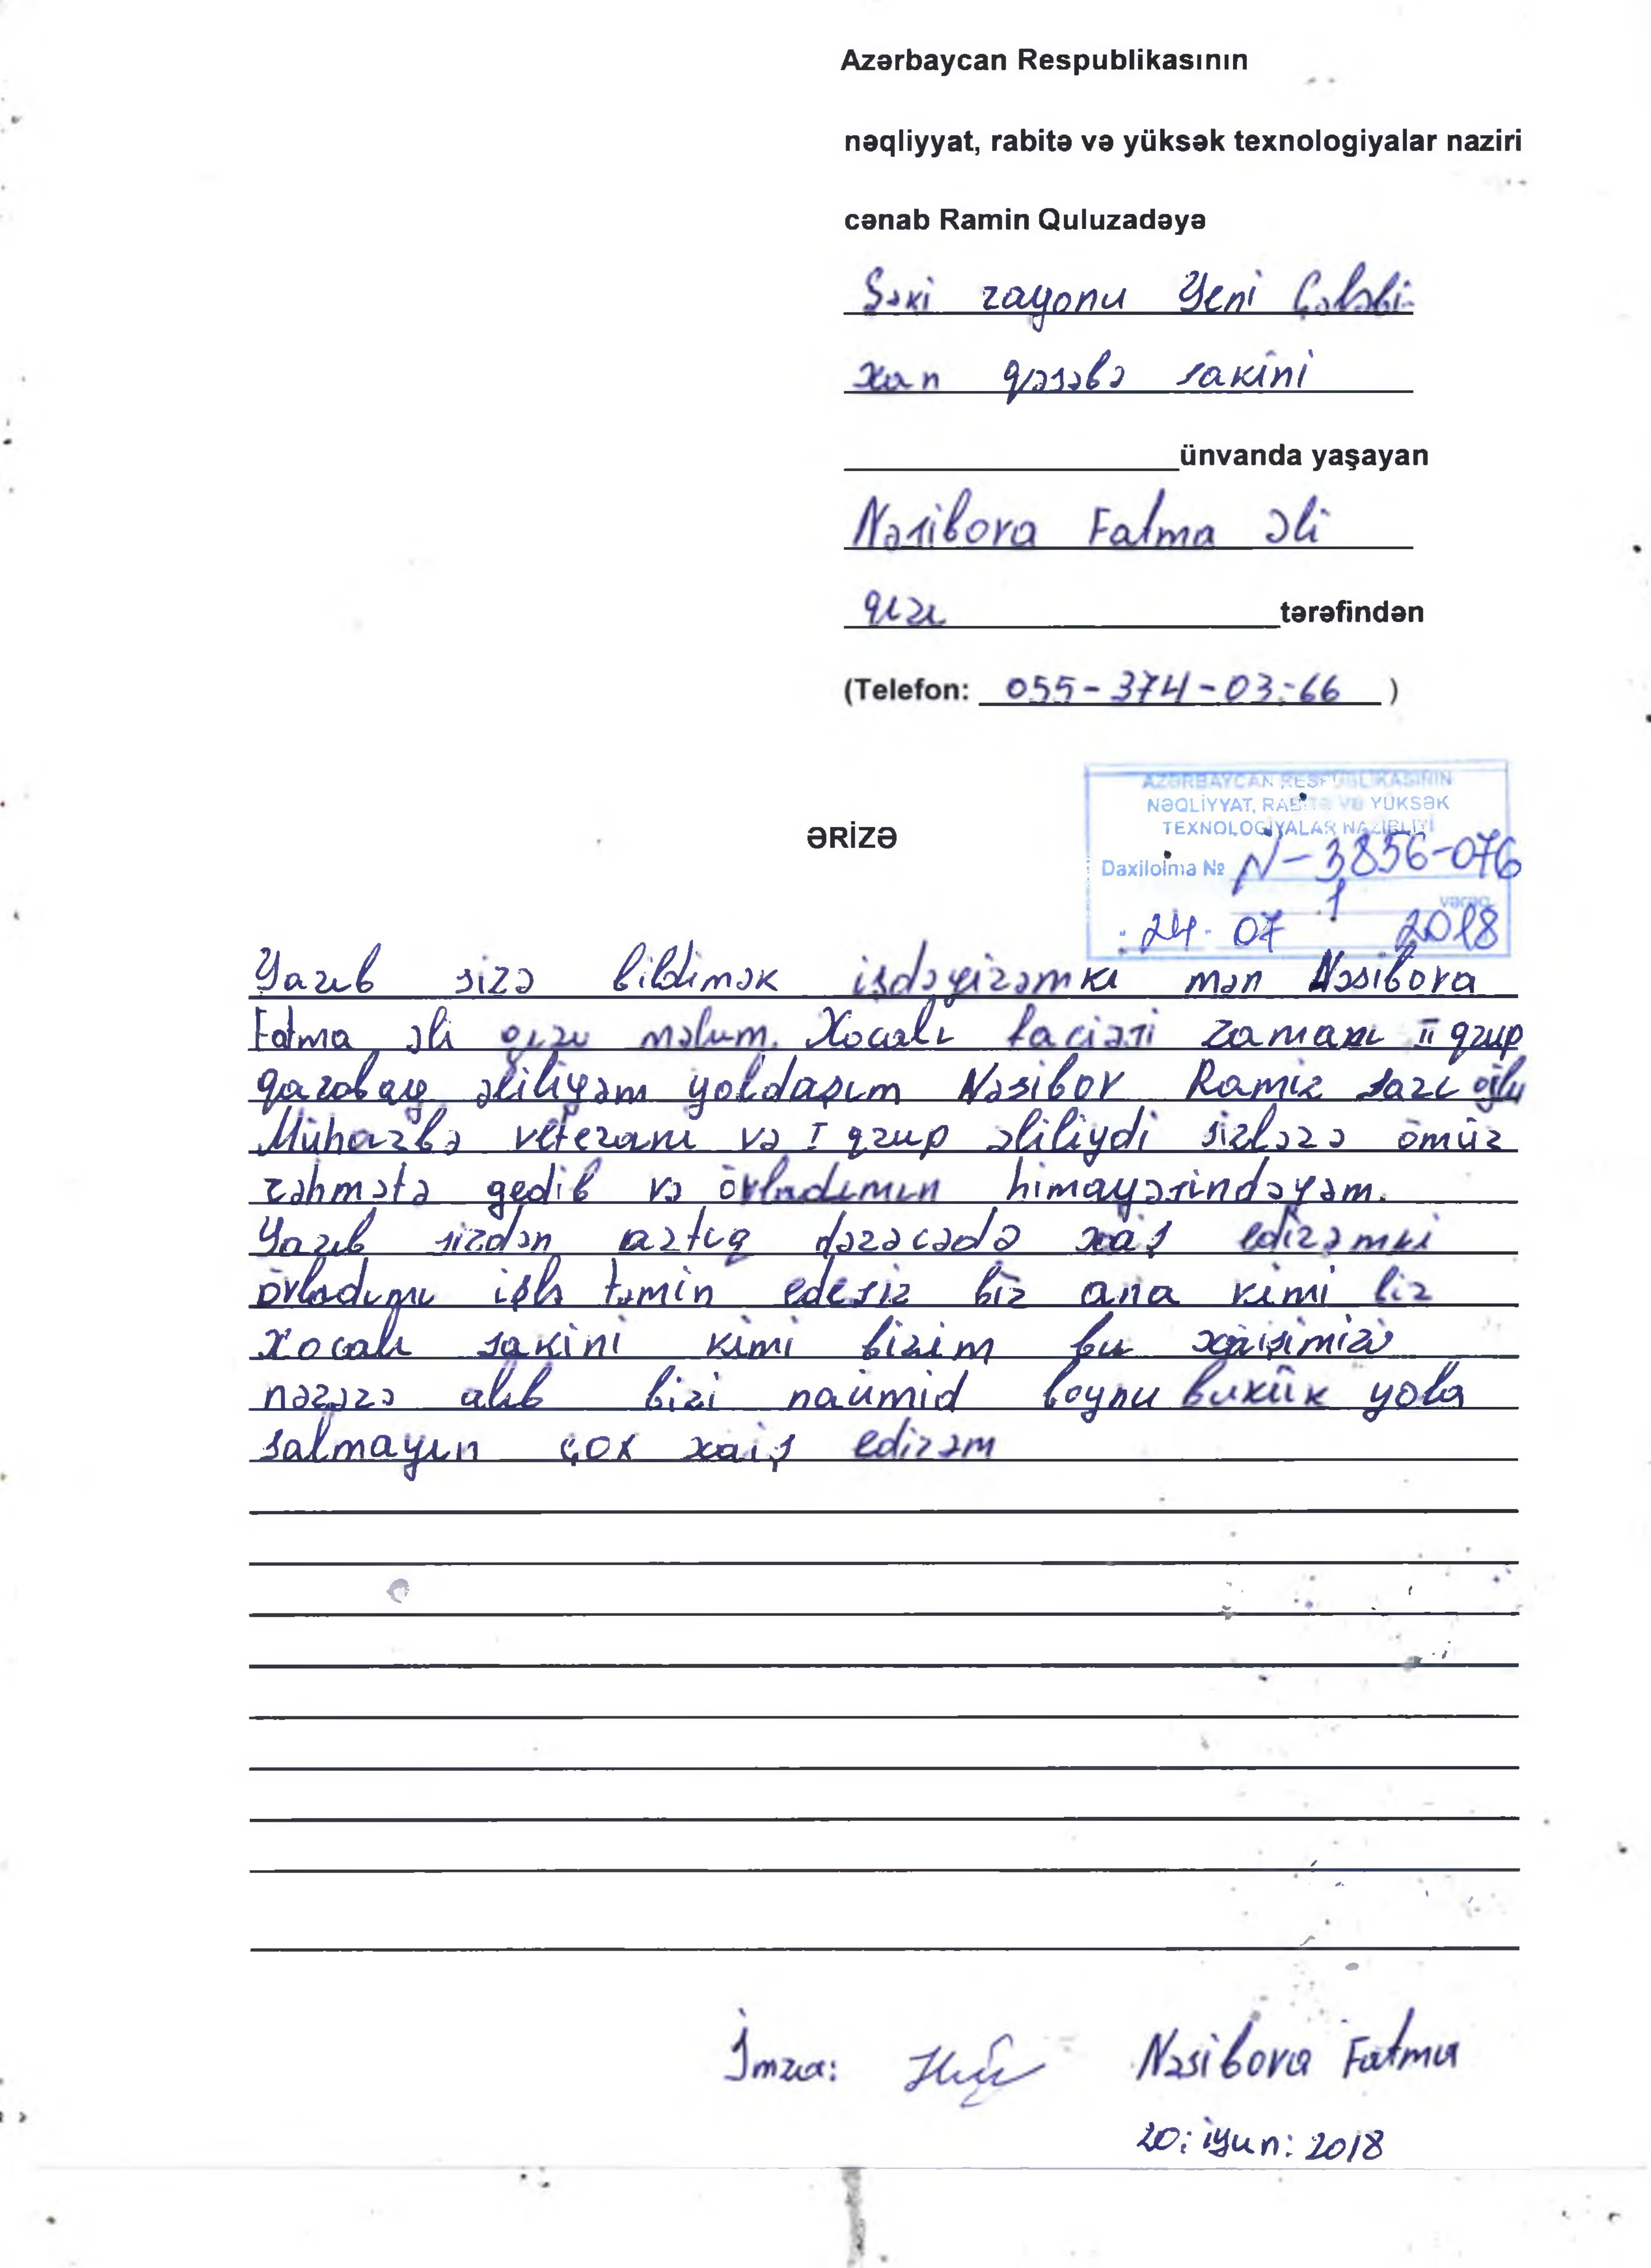 Azərbaycan Respublikasının
nəqliyyat, rabitə və yüksək texnologiyalar naziri
cənab Ramin Quluzadəyə
Şəki rayonu Yeni Çələbi-
xan qəsəbə sakini
ünvanda yaşayan
Nəsibova Fatma Əli
qızı tərəfindən
(Telefon: 055-374-03-66 )
AZƏRBAYCAN RESPUBLİKASININ
NƏQLİYYAT, RABİTƏ VƏ YÜKSƏK
TEXNOLOGİYALAR NAZİRLİYİ
Daxilolma № N-3856-076
1 vərəq
24. 07 2018
ƏRİZƏ
Yazıb sizə bildimək isdəyirəmki mən Nəsibova
Fatma əli qızı məlum. Xocalı faciəsi zamanı II qrup
qarabağ əliliyəm yoldaşım Nəsibov Ramiz sarı oğlu
Mühazbə veteranı və I qrup əliliydi sizlərə ömür
rəhmətə gedib və övladımın himayəsindəyəm.
Yazıb sizdən artıq dərəcədə xaiş edirəmki
övladımı işlə təmin edesiz bir ana kimi bir
Xocalı sakini kimi bizim bu xaişimizi
nəzərə alıb bizi naümid boynu bukük yola
salmayın çox xaiş edirəm
İmza: Nəsibova Fatma
20: iyun: 2018